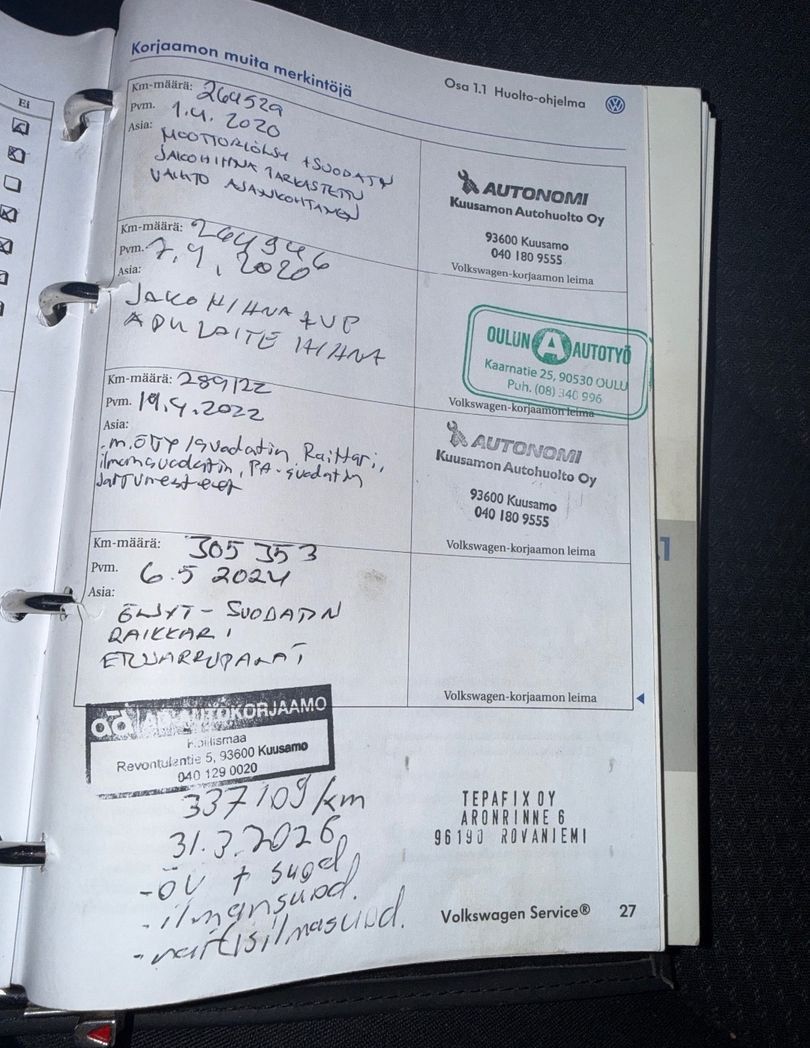 Ei
Korjaamon muita merkintöjä
Osa 1.1 Huolto-ohjelma
Km-määrä: 264529
Pvm. 1.4.2020
Asia:
MOOTTORIÖLJY + SUODATIN
JAKOHIHNA TARKASTETTU
VAIHTO AJANKOHTAINEN
AUTONOMI
Kuusamon Autohuolto Oy
93600 Kuusamo
040 180 9555
Volkswagen-korjaamon leima
Km-määrä: 264946
Pvm. 7.4.2020
Asia:
JAKOHIHNA + VP
APULAITE HIHNA
OULUN A AUTOTYÖ
Kaarnatie 25, 90530 OULU
Puh. (08) 340 996
Volkswagen-korjaamon leima
Km-määrä: 289122
Pvm. 19.4.2022
Asia:
ilmansuodatin, PA-suodatin
Jarrunesteet
AUTONOMI
Kuusamon Autohuolto Oy
93600 Kuusamo
040 180 9555
Volkswagen-korjaamon leima
Km-määrä: 305 353
Pvm. 6.5 2024
Asia:
ÖLJYT - SUODATIN
RAIKKARI
ETUJARRUPALAT
Volkswagen-korjaamon leima
ad AUTOKORJAAMO
Koillismaa
Revontulentie 5, 93600 Kuusamo
040 129 0020
337109/km
31.3.2026
- öv + suod
- ilmansuod.
- raitisilmasuod.
TEPAFIX OY
ARONRINNE 6
96190 ROVANIEMI
Volkswagen Service® 27